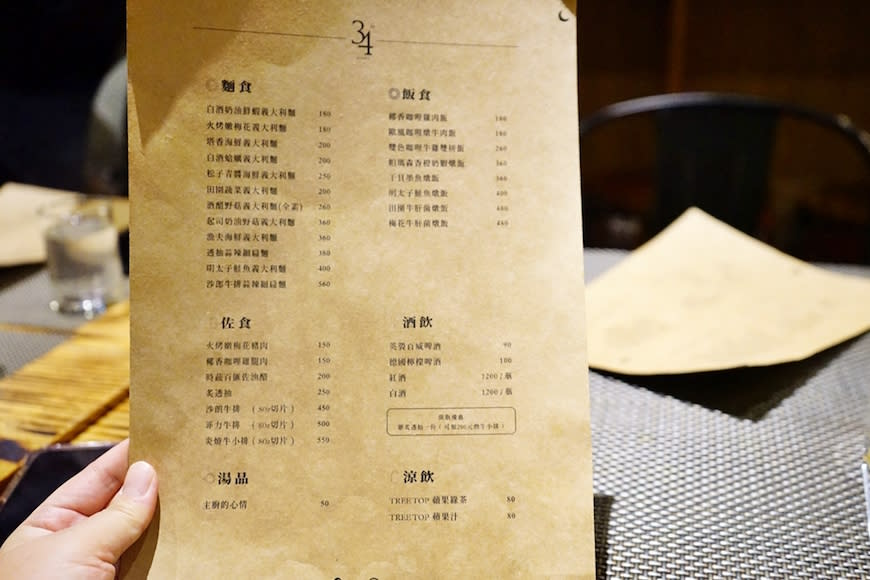 34
麵食
白酒奶油鮮蝦義大利麵 180
火烤嫩梅花義大利麵 180
塔香海鮮義大利麵 200
白酒蛤蠣義大利麵 200
松子青醬海鮮義大利麵 250
田園蔬菜義大利麵 200
酒醋野菇義大利麵(全素) 260
起司奶油野菇義大利麵 360
漁夫海鮮義大利麵 360
透抽蒜辣細扁麵 380
明太子鮭魚義大利麵 400
沙朗牛排蒜辣細扁麵 560
佐食
火烤嫩梅花豬肉 150
椰香咖哩雞腿肉 150
時蔬百匯佐油醋 200
炙透抽 250
沙朗牛排 (8oz切片) 450
菲力牛排 (8oz切片) 500
炎燒牛小排 (8oz切片) 550
湯品
主廚的心情 50
飯食
椰香咖哩雞肉飯 180
歐風咖哩燉牛肉飯 180
雙色咖哩牛雞雙拼飯 260
帕瑪森香橙奶蝦燉飯 360
干貝墨魚燉飯 360
明太子鮭魚燉飯 400
田園牛肝菌燉飯 480
梅花牛肝菌燉飯 480
酒飲
英製百威啤酒 90
德國檸檬啤酒 100
紅酒 1200 / 瓶
白酒 1200 / 瓶
涼飲
TREETOP 蘋果綠茶 80
TREETOP 蘋果汁 80